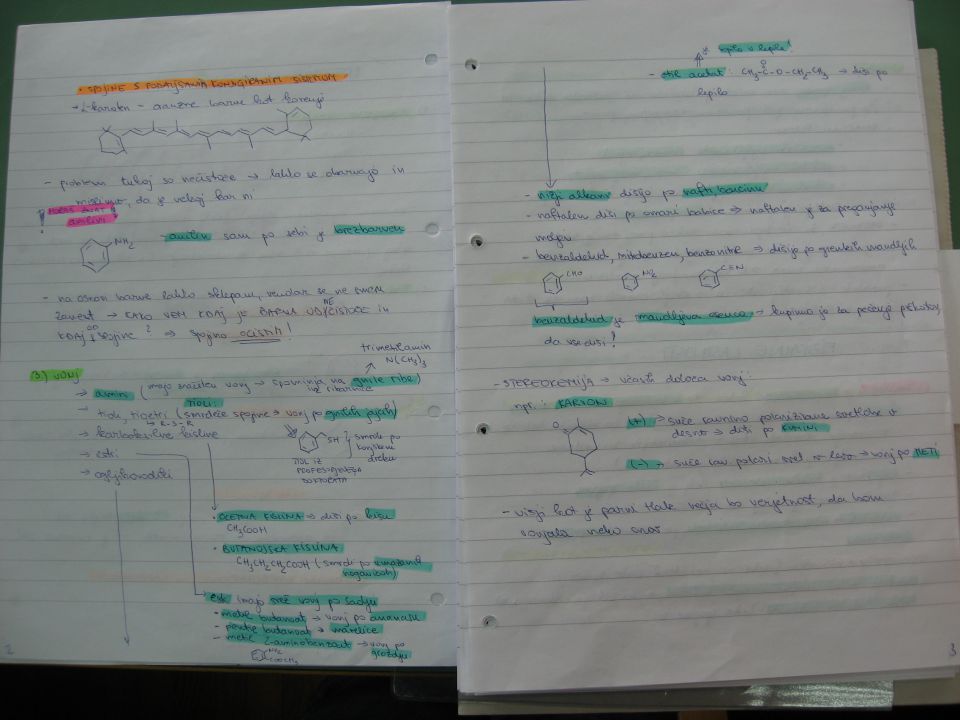 • SPOJINE S PODALJŠANIM KONJUGIRANIM SISTEMOM
→ β-karoten - oranžne barve kot korenje
- problem tukaj so nečistoče → lahko se obarvajo in
mislimo, da je nekaj kar ni
! anilini
NH2
- anilin sam po sebi je brezbarven
- na osnovi barve lahko sklepam, vendar se ne smem
zanest → KAKO VEM KDAJ JE BARVA OD NEČISTOČE in
KDAJ OD SPOJINE? ⇒ spojino OČISTIM!
trimetilamin
N(CH3)3
3.) VONJ
→ amini (majo značilen vonj → spominja na gnile ribe)
TIOLI:
→ tioli, tioetri (smrdeče spojine → vonj po gnilih jajcih)
R-S-R
→ karboksilne kisline
SH
smrdi po
konjskem
dreku
TIOL IZ
DOKTORATA
→ estri
→ ogljikovodiki
• OCETNA KISLINA → diši po kisu
CH3COOH
• BUTANOJSKA KISLINA
CH3CH2CH2COOH (smrdi po umazanih
nogavicah)
estri (majo svež vonj po sadju
- metil butanoat → vonj po ananasu
- pentil butanoat → marelice
- metil 2-aminobenzoat → vonj po
grozdju
NH2
COOCH3
2
topilo v lepilu!
- etil acetat: CH3-C-O-CH2-CH3 → diši po
O
lepilu
- nižji alkani dišijo po nafti, bencinu
- naftalen diši po omari babice → naftalen je za preganjanje
moljev
- benzaldehid, nitrobenzen, benzonitril → dišijo po grenkih mandljih
CHO
NO2
C≡N
benzaldehid je mandljeva esenca → kupimo jo za pečenje piškotov,
da vse diši!
- STEREOKEMIJA → včasih določa vonj:
npr.: KARVON
O
(+) → suče ravnino polarizirane svetlobe v
desno → diši po KUMINI
(-) → suče rav polari svet v levo → vonj po METI
- višji kot je parni tlak večja bo verjetnost, da bom
vonjala neko snov
3